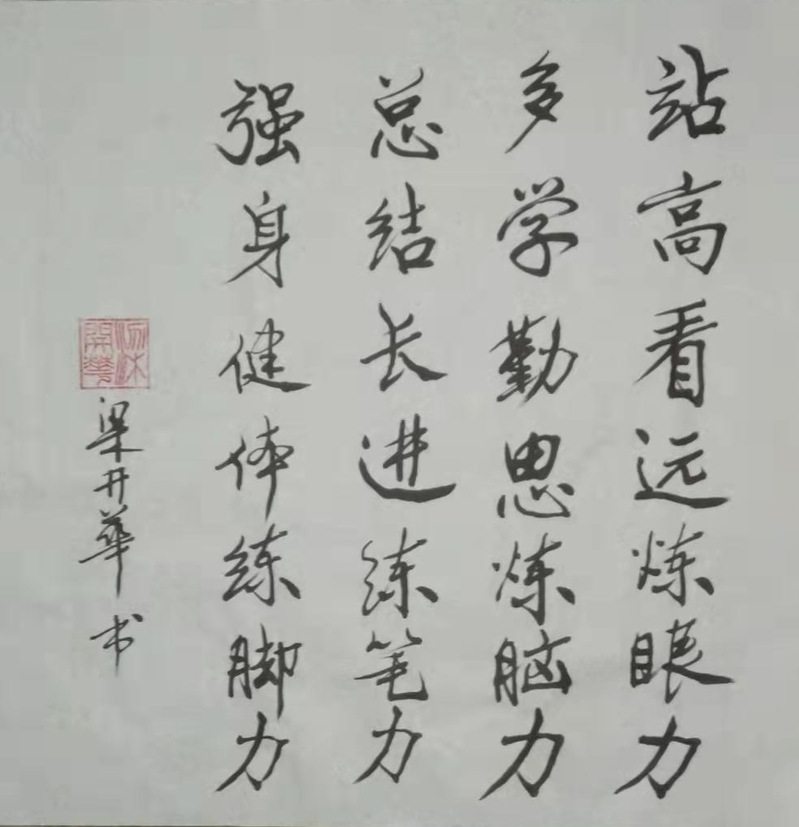 站高看远炼眼力
多学勤思炼脑力
总结长进练笔力
强身健体练脚力
梁开华书